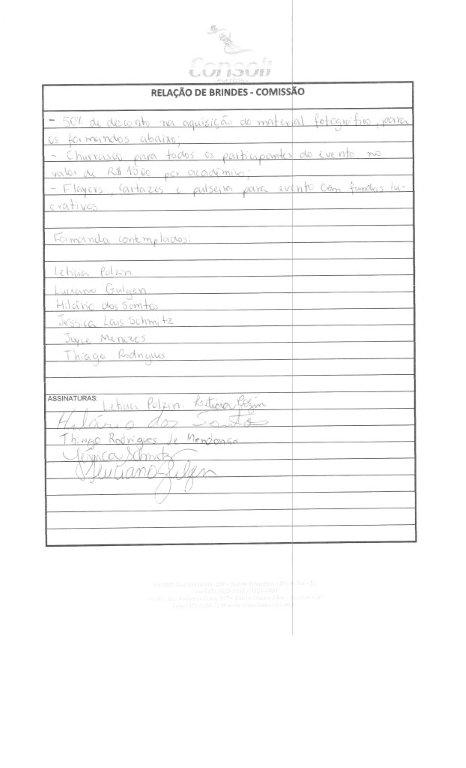 Consoli
RELAÇÃO DE BRINDES - COMISSÃO
- 50% de desconto na aquisição do material fotográfico, para
os formandos abaixo;
- Churrasco para todos os participantes do evento no
valor de R$ por acadêmico;
- Flayers, cartazes e pulseira para evento com fundos lu-
crativos.
contemplados:
Leticia Polzin
Luciano Gulgen
Hilário dos Santos
Jéssica Lais Schmitz
Joyce Menezes
Thiago Rodrigues
ASSINATURAS: Leticia Polzin
Hilário dos Santos
Thiago Rodrigues de Mendonça
Jéssica Schmitz
Luciano